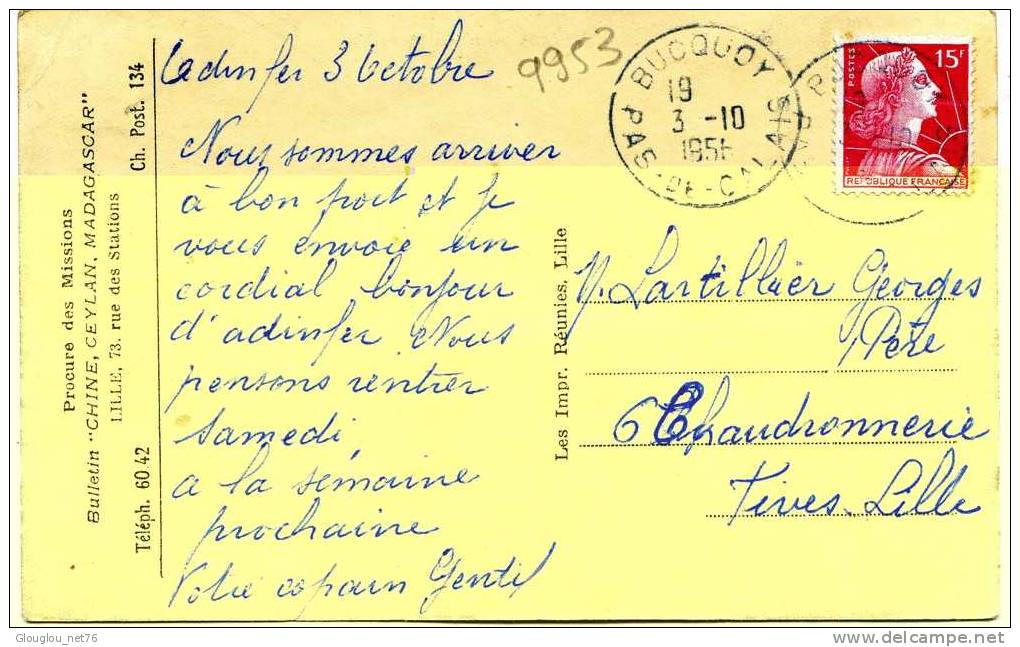 Adinfer 3 Octobre
Nous sommes arriver
à bon port et je
vous envoie un
cordial bonjour
d'adinfer Nous
pensons rentrer
samedi,
a la semaine
prochaine
Votre copain Gentil
9953
BUCQUOY
19
3 -10
1956
PAS-DE-CALAIS
POSTES
15F
REPUBLIQUE FRANÇAISE
M. Lartillier Georges
Père
6 Chaudronnerie
Fives-Lille
Les Impr. Réunies, Lille
Procure des Missions
Bulletin "CHINE, CEYLAN, MADAGASCAR"
LILLE, 73, rue des Stations
Téléph. 60.42 Ch. Post. 134
Glouglou_net76
http://www.delcampe.net